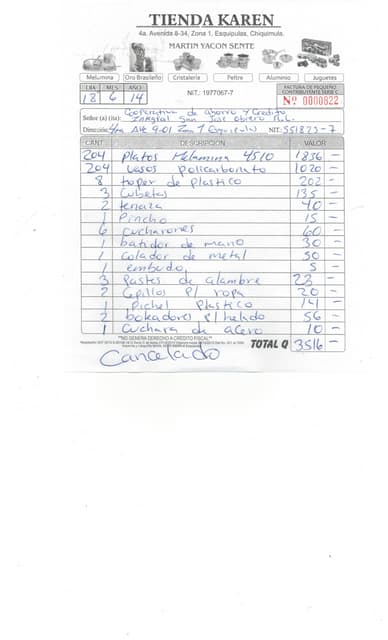 TIENDA KAREN
4a. Avenida 8-34, Zona 1, Esquipulas, Chiquimula.
MARTIN YACON SENTE
Melamina Oro Brasileño Cristalería Peltre Aluminio Juguetes
DIA MES AÑO
18 6 14
NIT.: 1977067-7
FACTURA DE PEQUEÑO
CONTRIBUYENTE SERIE C
Nº 0000822
Cooperativa de ahorro y Credito
Señor (a) (ita): Integral San José Obrero R.L.
Dirección: 4ta Ave 9-01 Zona 1 Esquipulas NIT: 551823-7
CANT. DESCRIPCION VALOR
204 Platos Melamina 4510 1836 -
204 Vasos policarbonato 1020 -
8 toper de plastico 202 -
3 Cubetas 135 -
2 tenaza 40 -
1 Pincho 15 -
6 Cucharones 60 -
1 batidor de mano 30 -
1 Colador de metal 50 -
1 embudo 5 -
3 Pastes de alambre
2 Cepillos p/ ropa 20 -
1 Pichel Plastico
2 bokadores p/ helado 56 -
1 Cuchara de acero 10 -
"NO GENERA DERECHO A CREDITO FISCAL"
TOTAL Q 3516 -
Cancelado